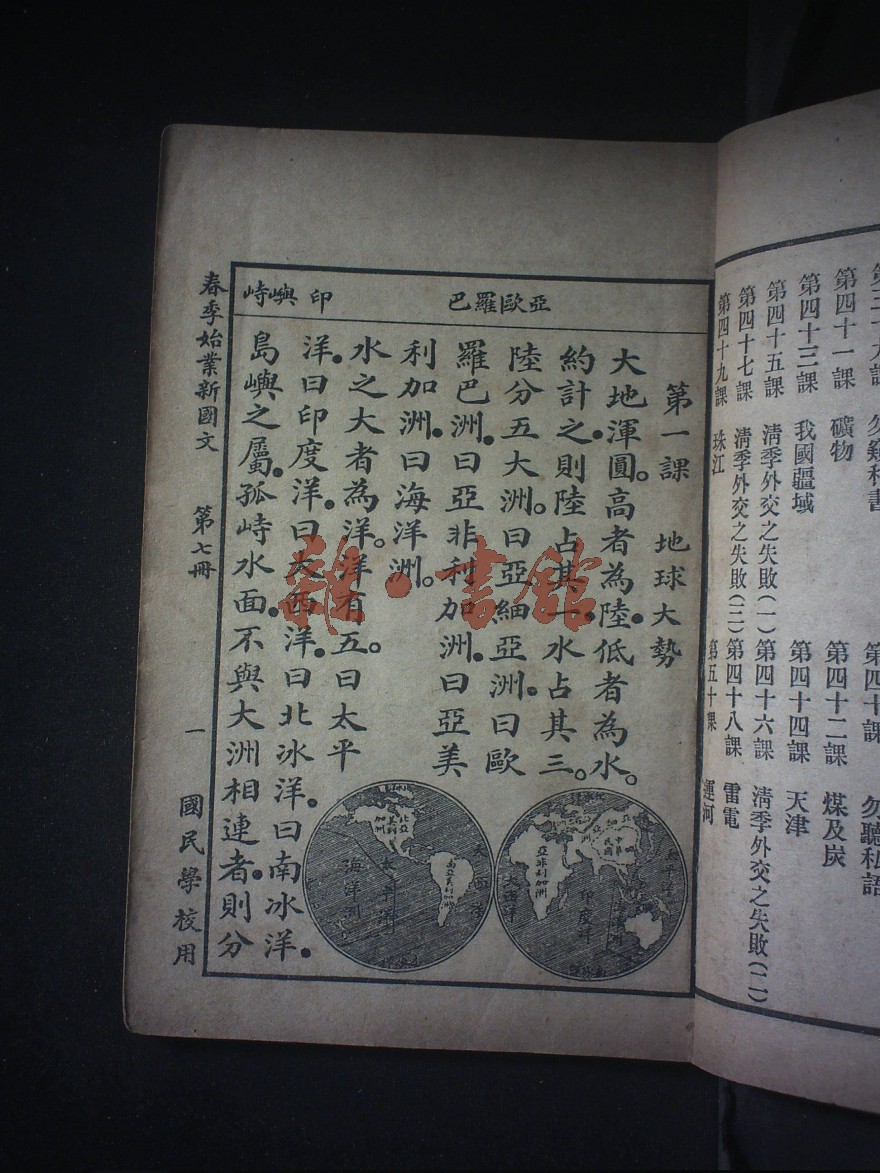 第四十一課 礦物
第四十二課 煤及炭
第四十三課 我國疆域
第四十四課 天津
第四十五課 清季外交之失敗(一)
第四十六課 清季外交之失敗(二)
第四十七課 清季外交之失敗(三)
第四十八課 雷電
第四十九課 珠江
第五十課 運河
亞歐羅巴 印嶼峙
第一課 地球大勢
大地渾圓。高者為陸。低者為水。
約計之。則陸占其一。水占其三。
陸分五大洲。曰亞細亞洲。曰歐
羅巴洲。曰亞非利加洲。曰亞美
利加洲。曰海洋洲。
水之大者為洋。洋有五。曰太平
洋。曰印度洋。曰大西洋。曰北冰洋。曰南冰洋。
島嶼之屬。孤峙水面。不與大洲相連者。則分
亞非利加洲
印度洋
大西洋
中華民國
太平洋
海洋洲
南亞美利加洲
春季始業新國文 第七冊 一 國民學校用
雜·書館